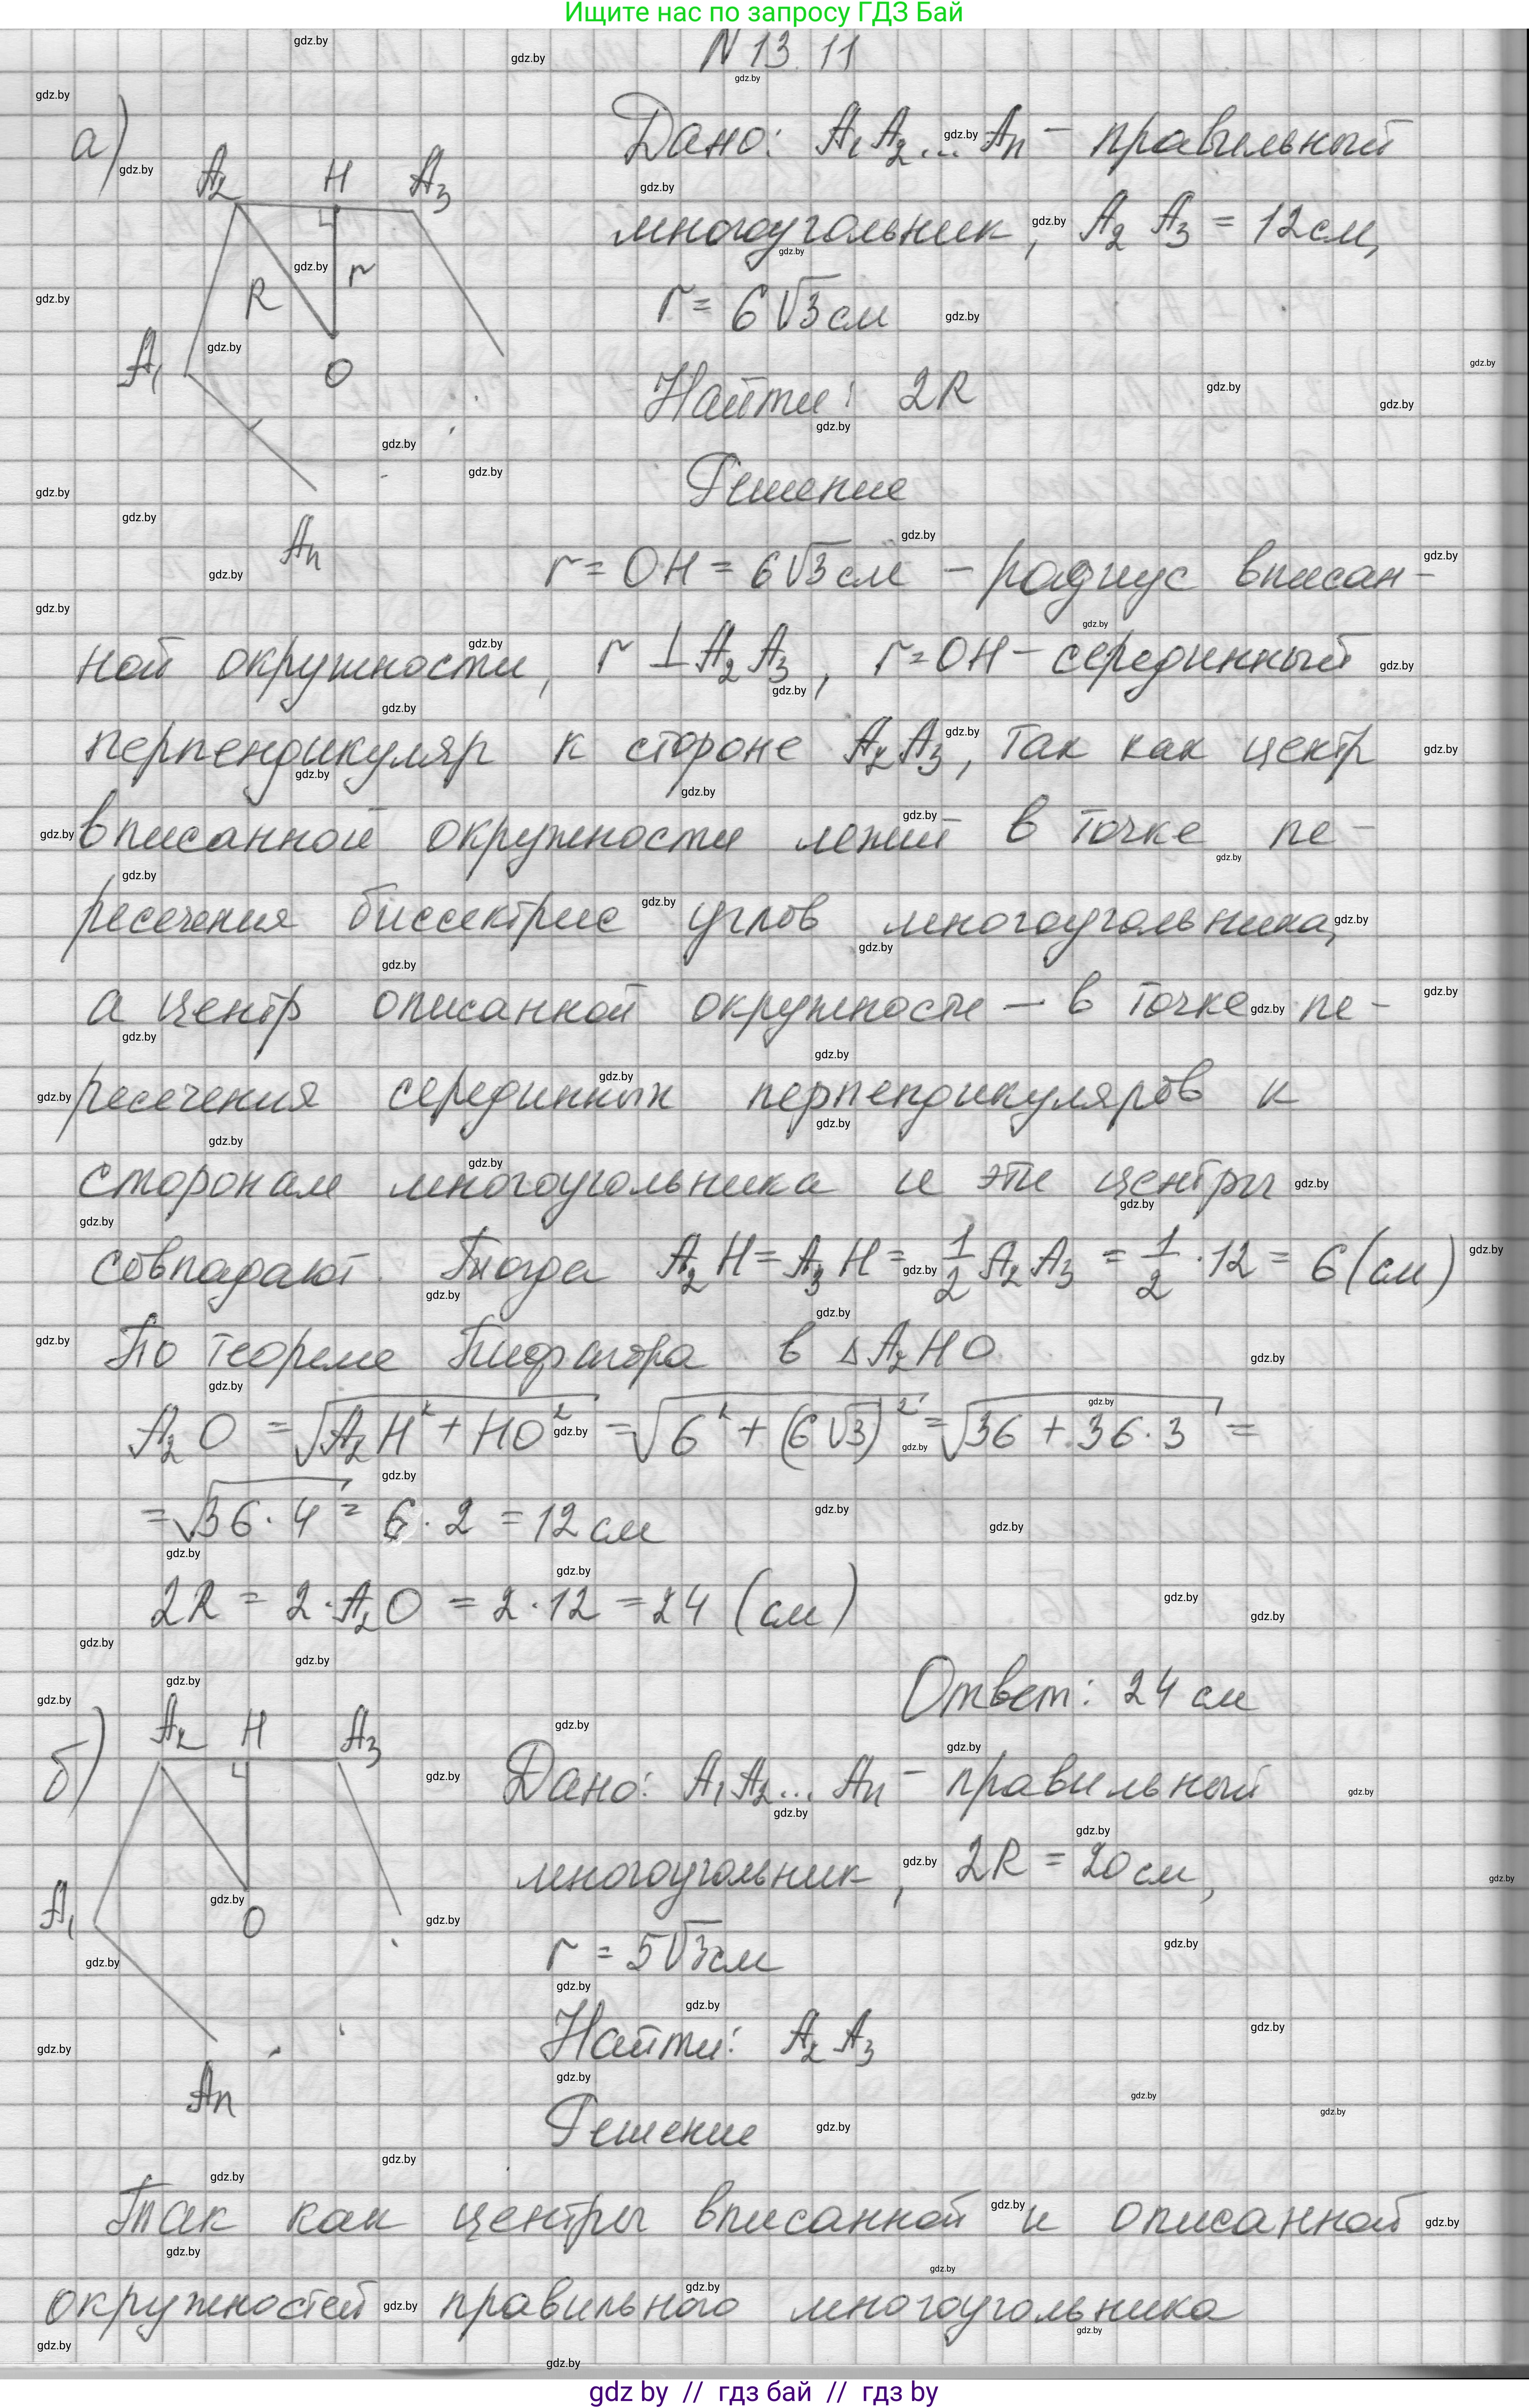 Ищите нас по запросу ГДЗ Бай
N 13.11
а)
A₂ H A₃
R r
A₁ O
Aₙ
Дано: A₁A₂...Aₙ - правильный
многоугольник, A₂A₃ = 12 см,
r = 6√3 см
Найти: 2R
Решение
r = OH = 6√3 см - радиус вписан-
ной окружности, r ⊥ A₂A₃, r = OH - серединный
перпендикуляр к стороне A₂A₃, так как центр
вписанной окружности лежит в точке пе-
ресечения биссектрис углов многоугольника,
а центр описанной окружности - в точке пе-
ресечения серединных перпендикуляров к
сторонам многоугольника и эти центры
совпадают. Тогда A₂H = A₃H = 1/2 A₂A₃ = 1/2 · 12 = 6 (см)
По теореме Пифагора в △A₂HO
A₂O = √(A₂H² + HO²) = √(6² + (6√3)²) = √(36 + 36·3) =
= √(36·4) = 6·2 = 12 см
2R = 2·A₂O = 2·12 = 24 (см)
Ответ: 24 см
б)
A₂ H A₃
A₁ O
Aₙ
Дано: A₁A₂...Aₙ - правильный
многоугольник, 2R = 20 см,
r = 5√3 см
Найти: A₂A₃
Решение
Так как центры вписанной и описанной
окружностей правильного многоугольника
gdz.by
gdz by // гдз бай // gdz by